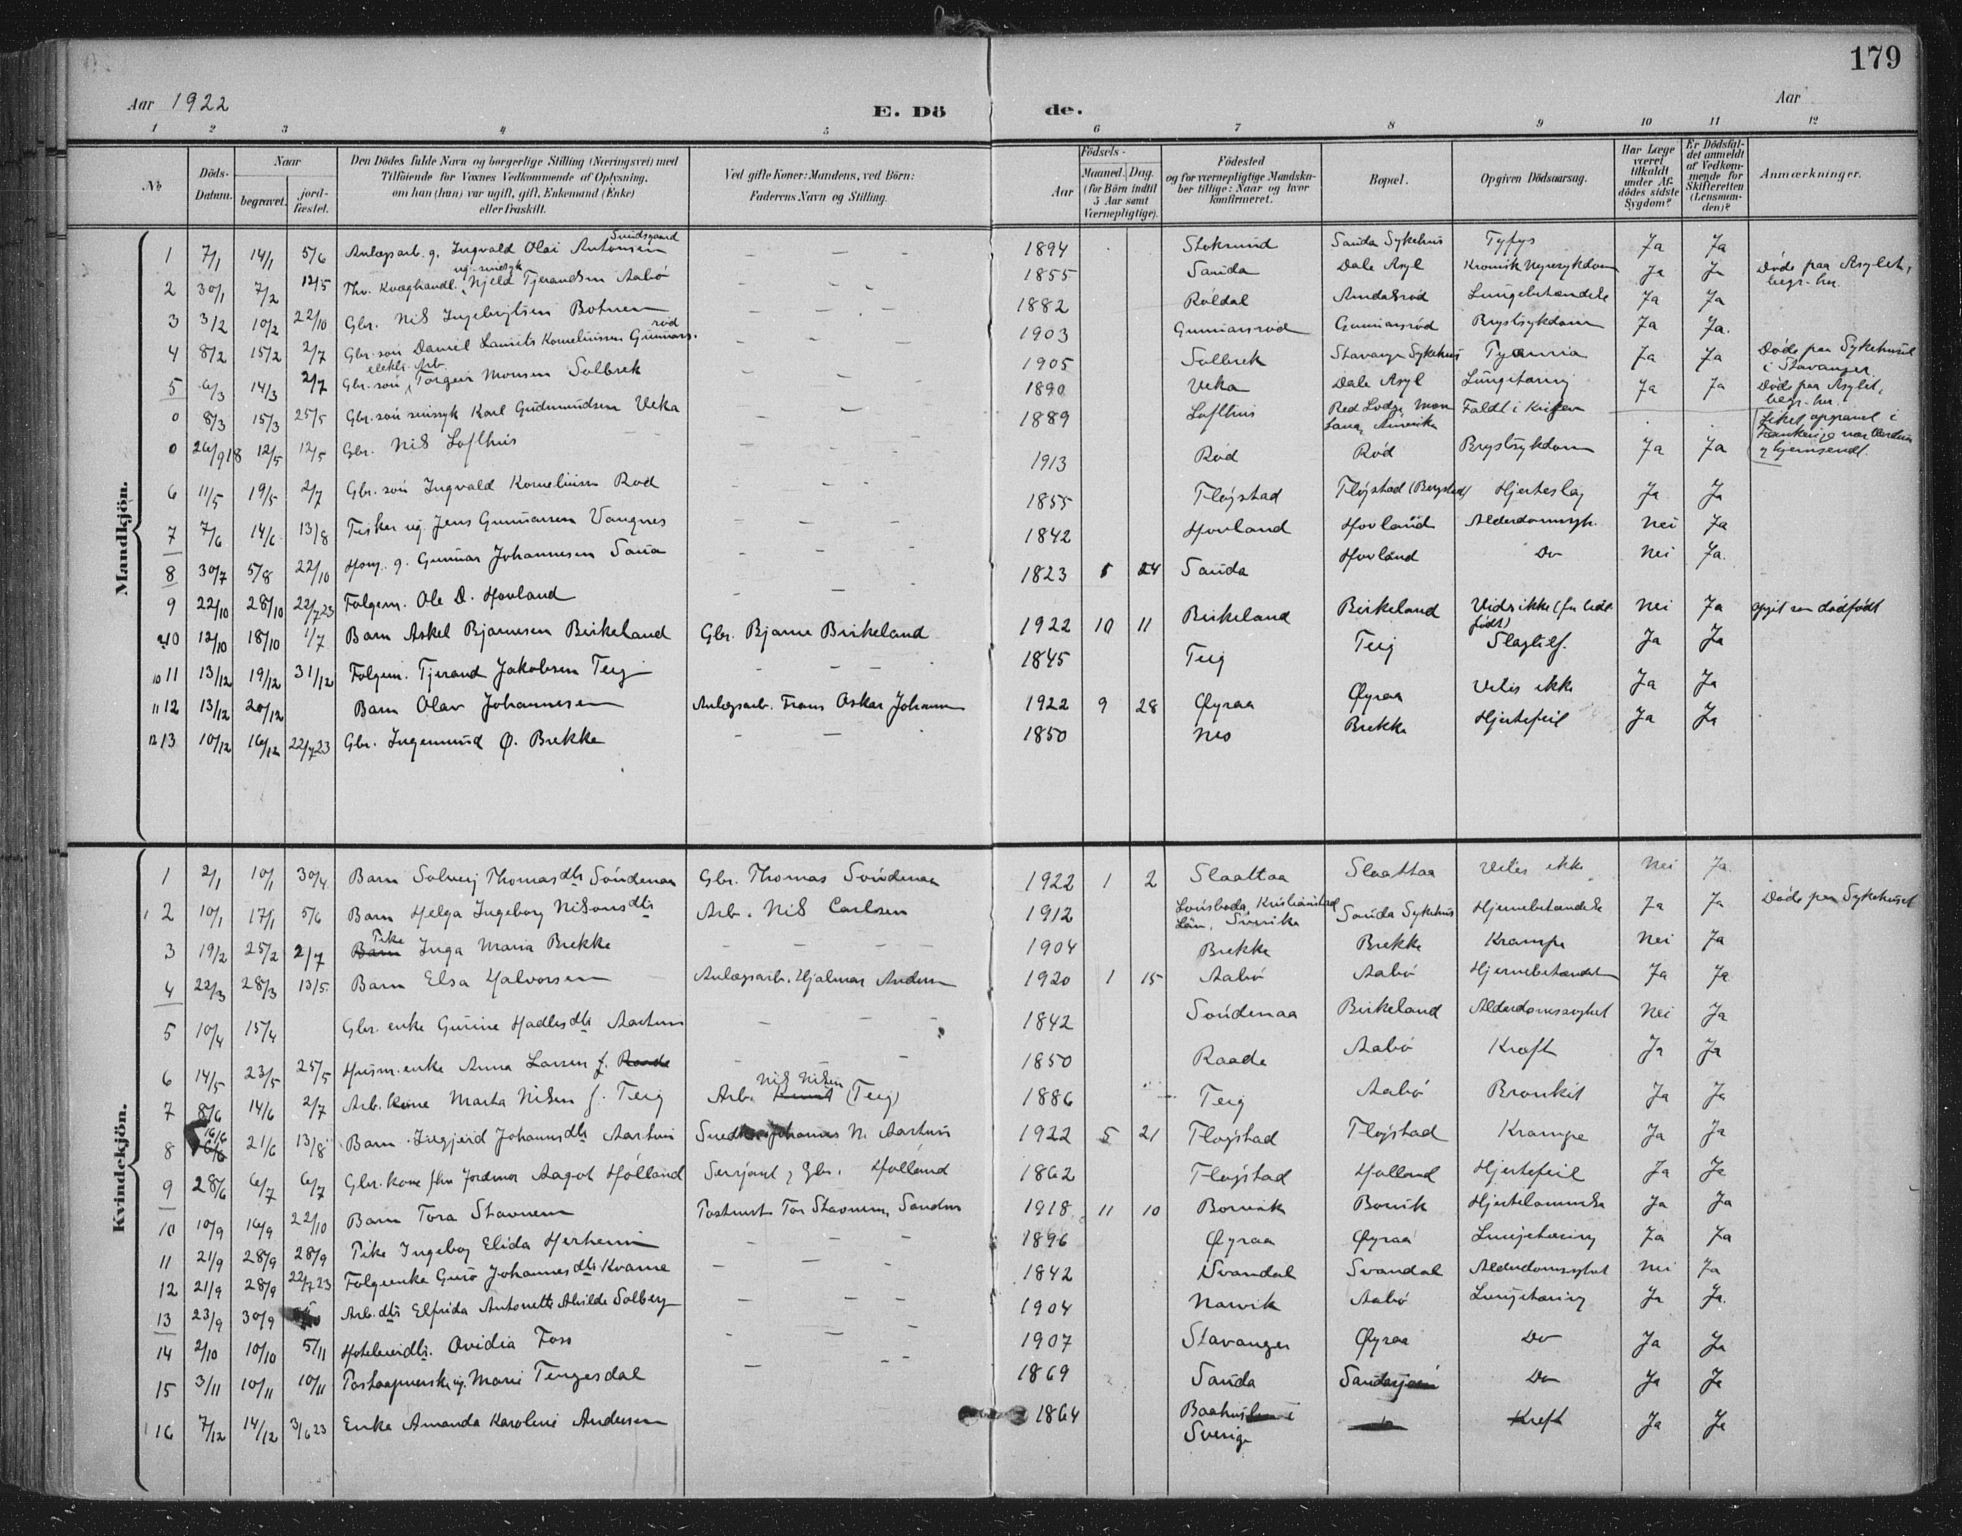 179
Aar 1922
E. Dö de.
Aar
1 2 3 4 5 6 7 8 9 10 11 12
No
Döds-Datum.
Naar
begravet.
jord-fæstet.
Den Dödes fulde Navn og borgerlige Stilling (Næringsvei) med
Tilföiende for Voxnes Vedkommende af Oplysning,
om han (hun) var ugift, gift, Enkemand (Enke)
eller fraskilt.
Ved gifte Koner: Mandens, ved Börn:
Faderens Navn og Stilling.
Födsels-
Aar
Maaned. Dag.
(for Börn indtil
5 Aar samt
Værnepligtige).
Födested
og for værnepligtige Mandska-
ber tillige: Naar og hvor
konfirmeret.
Bopæl.
Opgiven Dödsaarsag.
Har Læge
været
tilkaldt
under Af-
dödes sidste
Sygdom?
Er Dödsfal-
det anmeldt
af Vedkom-
mende for
Skifteretten
(Lensman-
den)?
Anmærkninger.
Mandkjön.
1 7/1 14/1 5/6 Anlægsarb. g. Ingvald Olai Antonsen Sundsgaard — — 1894 Sanda Sykehus Tyfys Ja Ja
2 30/1 7/2 12/5 Fhv. Kvæghandl. ug. sindsyk Njeld Tjerandsen Aabö — — 1855 Sauda Dale Asyl Kronisk Nyresykdom Ja Ja Döde paa Asylet, begr. her.
3 3/2 10/2 22/10 Gbr. Nils Ingebrigtsen Botnen — — 1882 Röldal Amdalsröd Lungebetændelse Ja Ja
4 8/2 15/2 2/7 Gbr. sön Daniel Laurits Korneliussen Gunnarsröd — — 1903 Gunnarsröd Gunnarsröd Brystsykdom Ja Ja.
5 6/3 14/3 2/7 Gbr. sön, elektr. Arb. Torgeir Monsen Solbrek — — 1905 Solbrek Stavanger Sykehus Ja Ja Döde paa Sykehuset i Stavanger
0 8/3 15/3 25/5 Gbr. sön sinsyk Karl Gudmundsen Veka — — 1890 Veka Dale Asyl Lungetæring Ja Ja Döde paa Asylet, begr. her.
0 26/9 18 12/5 12/5 Gbr. Nils Lofthus — — 1889 Lofthus Red Lodge Mon tana, Amerika Faldt i Krigen Liket opgravet i Frankrige hjemsendt.
6 11/5 19/5 2/7 Gbr. sön Ingvald Korneliussen Rød — — 1913 Röd Röd Brystsykdom Ja Ja
7 7/6 14/6 13/8 Fisker ug. Jens Gunnarsen Vangnes — — 1855 Fløgstad Fløgstad Hjerteslag Ja Ja
8 30/7 5/8 22/10 Hsm. g. Gunnar Johannesen Sana — — 1842 Hovland Hovland Alderdomssyk. Nei Ja
9 22/10 28/10 22/7 23 Folgem. Ole D. Hovland — — 1823 5 24 Sauda Hovland Do Nei Ja.
10 12/10 18/10 1/7 Barn Askel Bjarnesen Birkeland Gbr. Bjarne Birkeland 1922 10 11 Birkeland Birkeland Vides ikke (for tidl. født) Nei Ja opgit som dödfödt
10 11 13/12 19/12 31/12 Folgem. Tjerand Jakobsen Teig — — 1845 Teig Teig Slagtilf. Ja Ja
11 12 13/12 20/12 Barn Olav Johannesen Anlægsarb. Frans Oskar Johansen 1922 9 28 Øyraa Øyraa Vites ikke Ja Ja
12 13 10/12 16/12 22/7 23 Gbr. Ingemund Ø. Brekke — — 1850 Nes Brekke Hjertefeil Ja Ja
Kvindekjön.
1 2/1 10/1 30/4 Barn Solveig Thomasdtr Söndenaa Gbr. Thomas Söndenaa 1922 1 2 Slaattaa Slaattaa Vites ikke Nei Ja.
2 10/1 17/1 5/6 Barn Helga Ingeborg Nilsonsdtr Arb. Nils Carlsen 1912 Kristianstad Län, Sverike Sauda Sykehus Hjernebetændelse Ja Ja Döde paa Sykehuset
3 19/2 25/2 2/7 Barn Pike Inga Maria Brekke — — 1904 Brekke Brekke Krampe Nei Ja
4 22/3 28/3 13/5 Barn Elsa Halvorsen Anlægsarb. Hjalmar Andersen 1920 1 15 Aabö Aabö Hjernebetændels Ja Ja
5 10/4 15/4 Gbr. enke Gurine Hadlesdtr Aartun — — 1842 Söndenaa Birkeland Alderdomssvaghet Nei Ja
6 14/5 23/5 25/5 Husm. enke Anna Larsen f. Raade — — 1850 Raade Aabö Kræft Ja Ja
7 8/6 14/6 2/7 Arb. kone Marta Nilsen f. Teig Arb. Nils Nilsen (Teig) 1886 Teig Aabö Bronkit Ja Ja
8 16/6 21/6 13/8 Barn Ingjerd Johannsdtr Aartun Snedker Johannes N. Aartun 1922 5 21 Flogstad Flogstad Krampe Ja Ja
9 28/6 6/7 6/7 Gbr. kone fhv Jordmor Aagot Hölland Sersjant, Gbr. Hölland 1862 Flogstad Hölland Hjertefeil Ja Ja
10 10/9 16/9 22/10 Barn Tora Stavnem Postmest. Tor Stavnem, Sandn 1918 11 10 Borvik Borvik Hjertelammelse Ja Ja
11 21/9 28/9 28/9 Pike Ingebog Elida Herheim — — 1896 Øyraa Øyraa Lungetæring Ja Ja
12 21/9 28/9 22/7 23 Folgeenke Guro Johannesdtr Kvame — — 1842 Svandal Svandal Alderdomssvghet Nei Ja
13 23/9 30/9 Arb. dtr Elfrida Antonette Alvilde Solberg — — 1904 Narvik Aabö Lungetæring Ja Ja.
14 2/10 10/10 5/11 Hoteleierdtr. Ovidia Foss — — 1907 Stavanger Øyraa Do Ja Ja
15 3/11 10/11 10/11 Postaapnerske ug. Marie Tengesdal — — 1869 Sauda Saudasjøen Do Ja Ja
16 7/12 14/12 3/6 23 Enke Amanda Karoline Andersen 1864 Baahuslen i Sverige Kreft Ja Ja